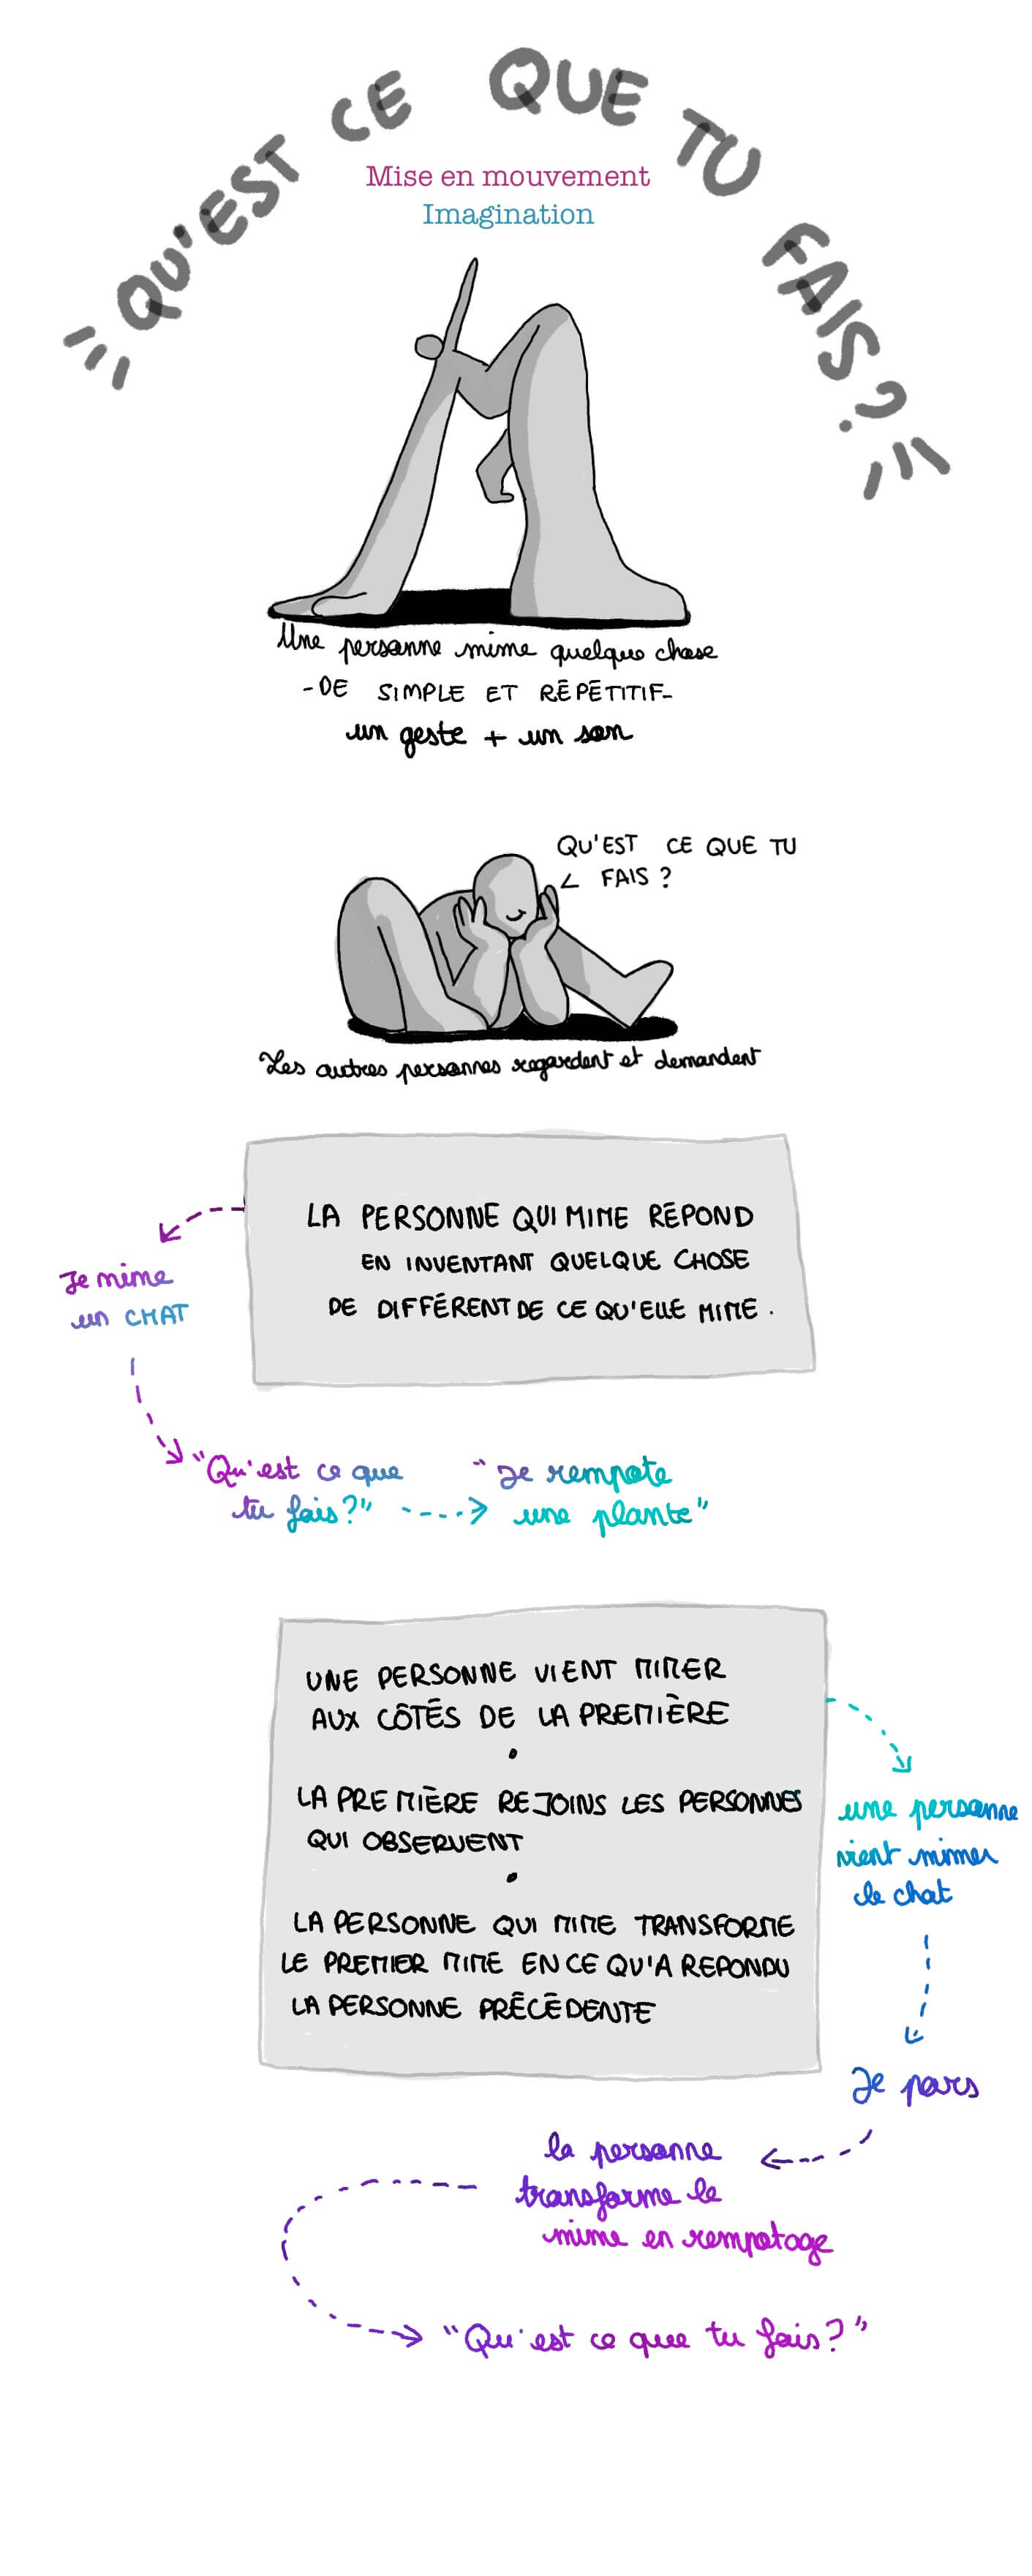 QU'EST CE QUE TU FAIS ?
Mise en mouvement
Imagination
Une personne mime quelque chose
- DE SIMPLE ET RÉPÉTITIF -
un geste + un son
QU'EST CE QUE TU
FAIS ?
Les autres personnes regardent et demandent
LA PERSONNE QUI MIME RÉPOND
EN INVENTANT QUELQUE CHOSE
DE DIFFÉRENT DE CE QU'ELLE MIME .
Je mime
un CHAT
"Qu'est ce que
tu fais ?"
"Je rempote
une plante"
UNE PERSONNE VIENT MIMER
AUX CÔTÉS DE LA PREMIÈRE
•
LA PREMIÈRE REJOINS LES PERSONNES
QUI OBSERVENT
•
LA PERSONNE QUI MIME TRANSFORME
LE PREMIER MIME EN CE QU'A REPONDU
LA PERSONNE PRÉCÉDENTE
une personne
vient mimer
le chat
Je pars
la personne
transforme le
mime en rempotage
"Qu'est ce que tu fais ?"